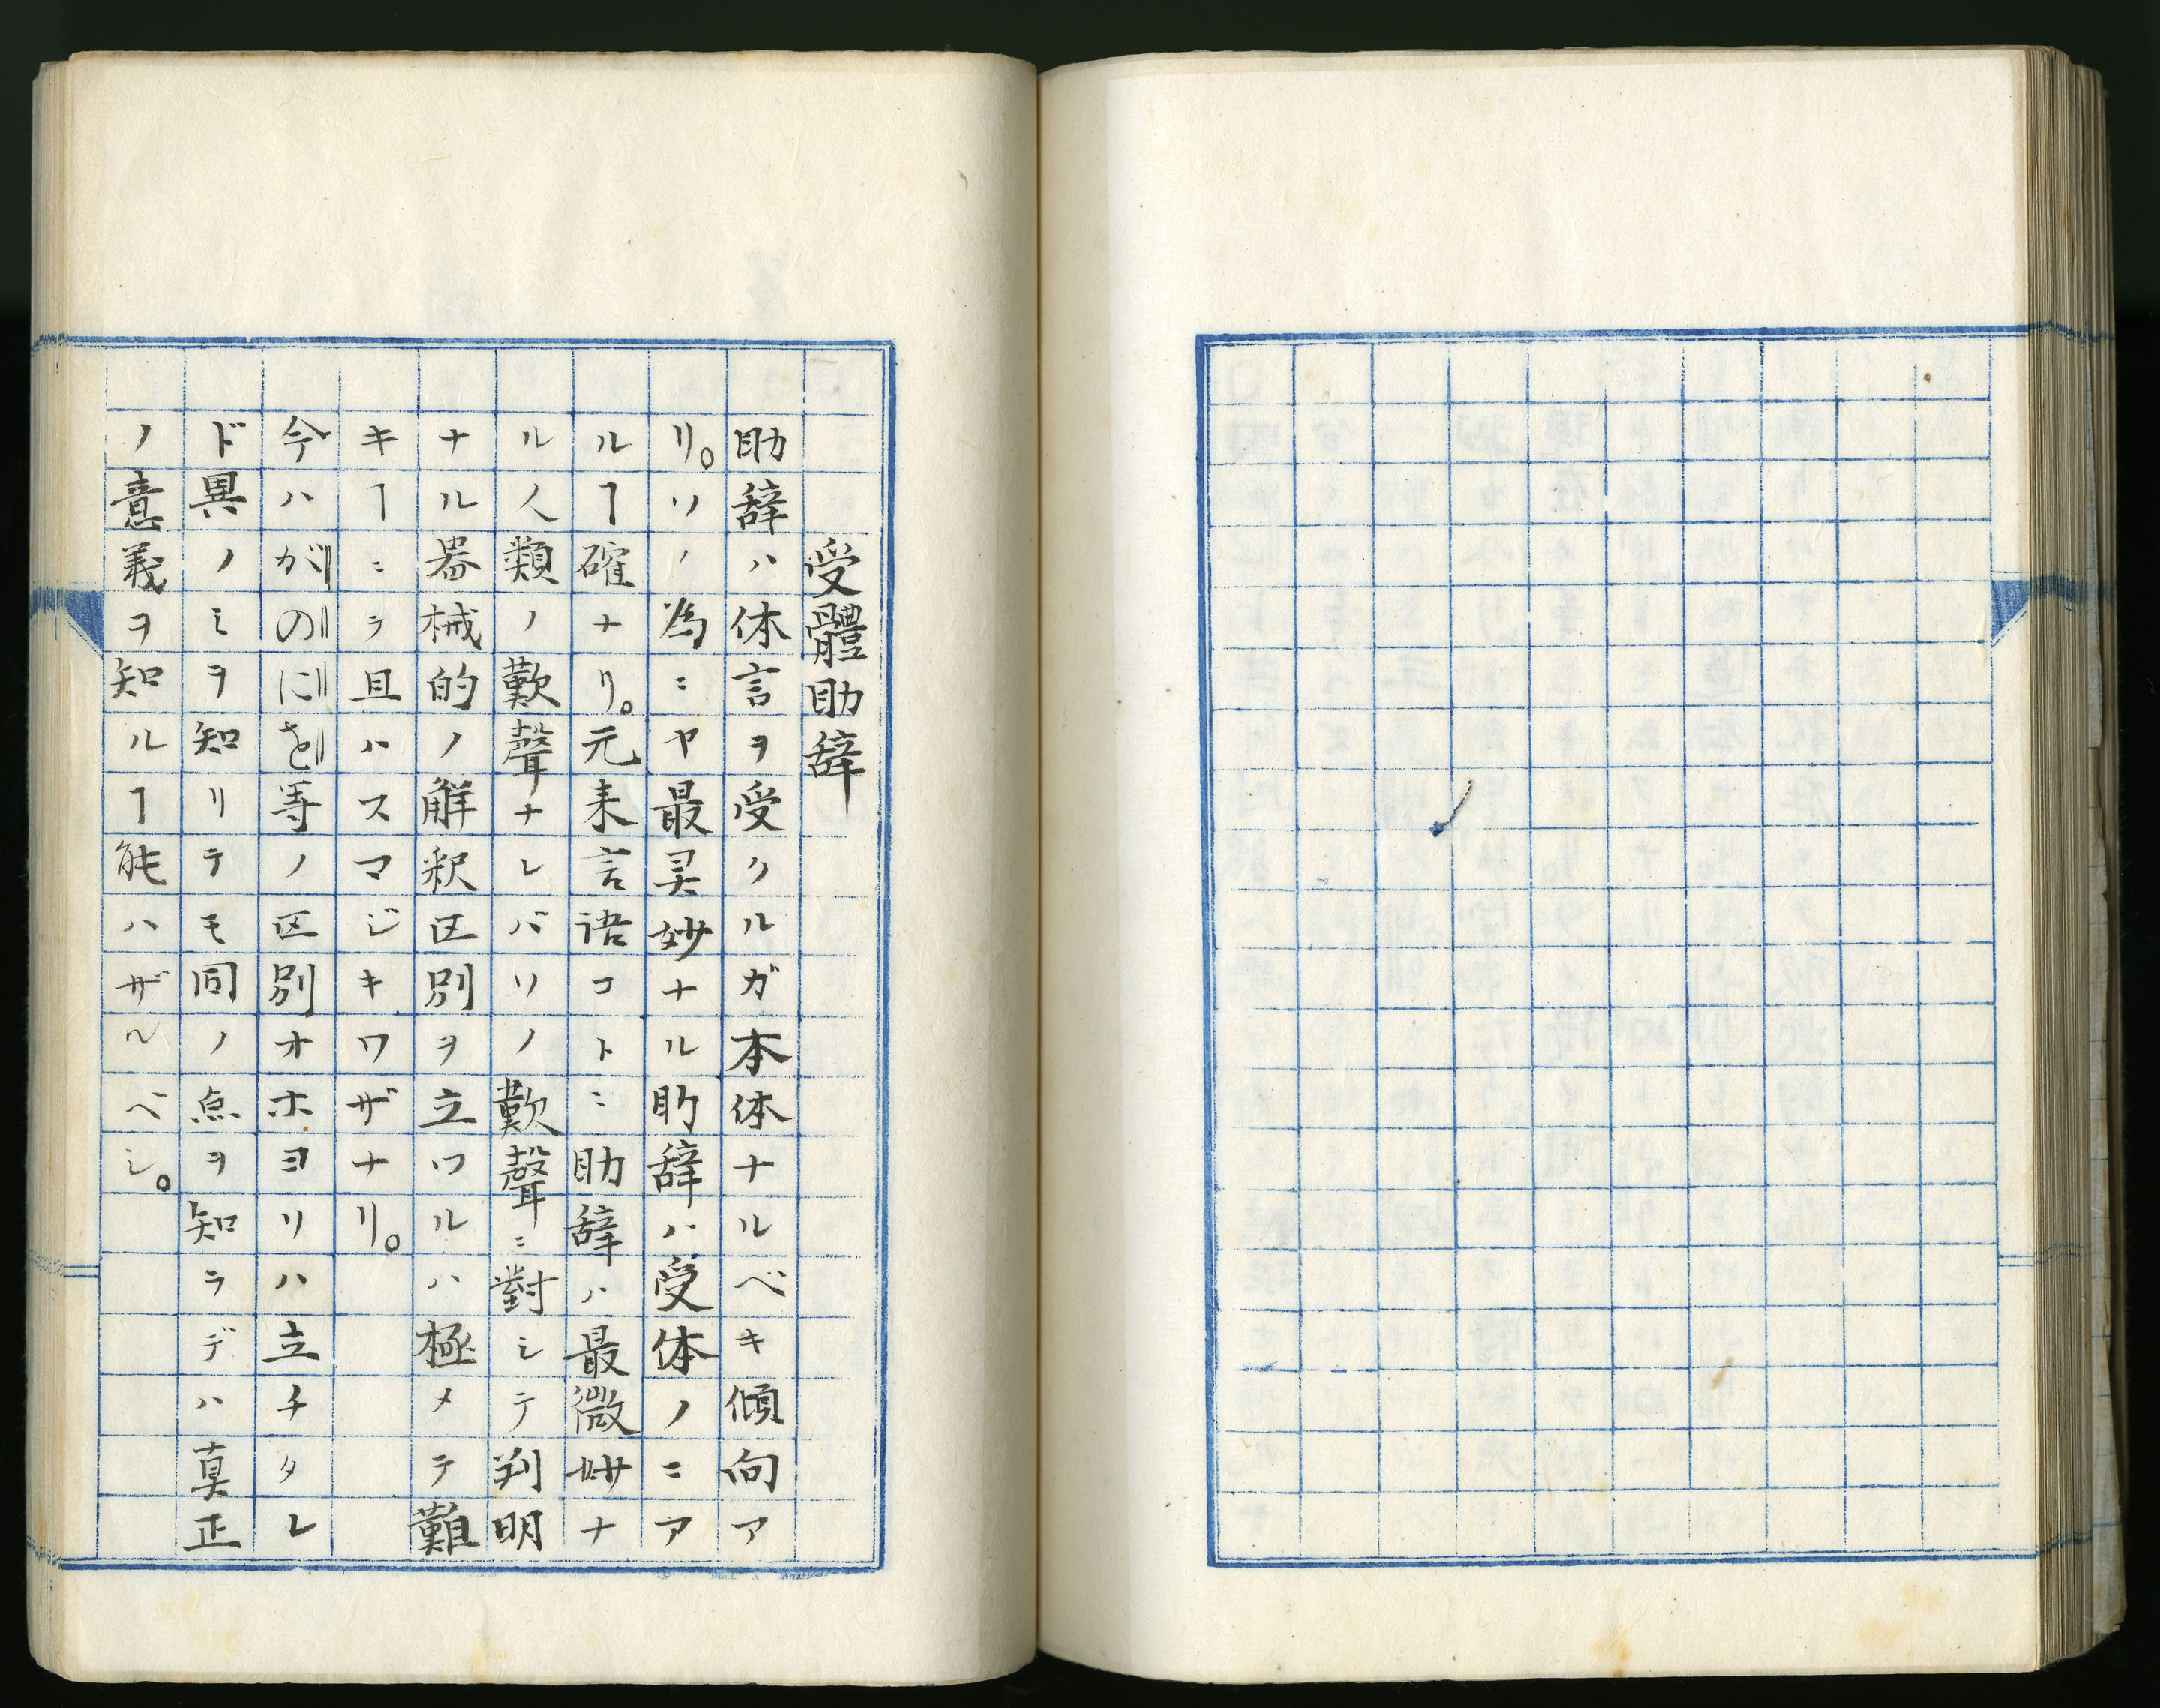 受體助辞
助辞ハ体言ヲ受クルガ本体ナルベキ傾向ア
リ。ソノ為ニヤ最灵妙ナル助辞ハ受体ノニア
ルヿ確ナリ。元来言语コトニ助辞ハ最微妙ナ
ル人類ノ歎聲ナレバソノ歎聲ニ對シテ判明
ナル器械的ノ解釈区別ヲ立ツルハ極メテ難
キヿニテ且ハスマジキワザナリ。
今ハがのにを等ノ区別オホヨリハ立チタレ
ド異ノミヲ知リテモ同ノ点ヲ知ラデハ真正
ノ意義ヲ知ルヿ能ハザルベシ。